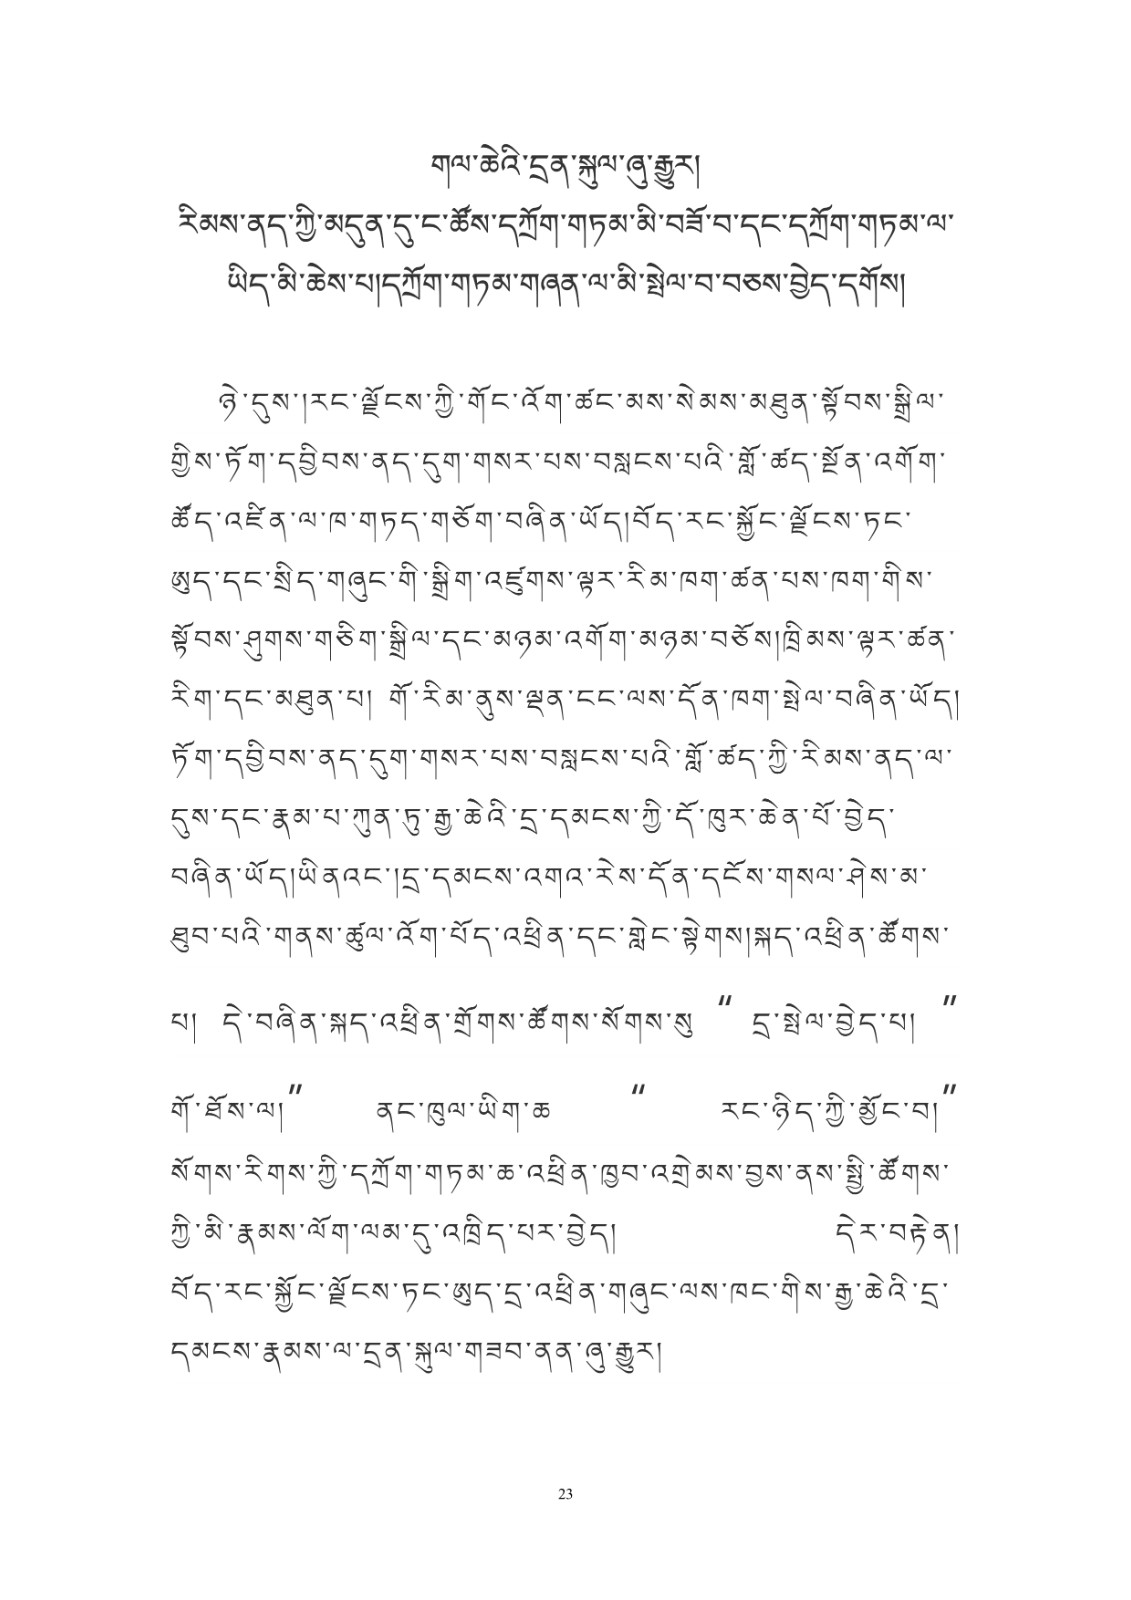 གལ་ཆེའི་དྲན་སྐུལ་ཞུ་རྒྱུར།
རིམས་ནད་ཀྱི་མདུན་དུ་ང་ཚོས་དཀྲོག་གཏམ་མི་བཟོ་བ་དང་དཀྲོག་གཏམ་ལ་
ཡིད་མི་ཆེས་པ།དཀྲོག་གཏམ་གཞན་ལ་མི་སྤེལ་བ་བཅས་བྱེད་དགོས།
ཉེ་དུས་།རང་ལྗོངས་ཀྱི་གོང་འོག་ཚང་མས་སེམས་མཐུན་སྟོབས་སྒྲིལ་
གྱིས་ཏོག་དབྱིབས་ནད་དུག་གསར་པས་བསླངས་པའི་གློ་ཚད་སྔོན་འགོག་
ཚོད་འཛིན་ལ་ཁ་གཏད་གཅོག་བཞིན་ཡོད།བོད་རང་སྐྱོང་ལྗོངས་ཏང་
ཨུད་དང་སྲིད་གཞུང་གི་སྒྲིག་འཛུགས་ལྟར་རིམ་ཁག་ཚན་པས་ཁག་གིས་
སྟོབས་ཤུགས་གཅིག་སྒྲིལ་དང་མཉམ་འགོག་མཉམ་བཅོས།ཁྲིམས་ལྟར་ཚན་
རིག་དང་མཐུན་པ། གོ་རིམ་ནུས་ལྡན་ངང་ལས་དོན་ཁག་སྤེལ་བཞིན་ཡོད།
ཏོག་དབྱིབས་ནད་དུག་གསར་པས་བསླངས་པའི་གློ་ཚད་ཀྱི་རིམས་ནད་ལ་
དུས་དང་རྣམ་པ་ཀུན་ཏུ་རྒྱ་ཆེའི་དྲ་དམངས་ཀྱི་དོ་ཁུར་ཆེན་པོ་བྱེད་
བཞིན་ཡོད།ཡིནའང་།དྲ་དམངས་འགའ་རེས་དོན་དངོས་གསལ་ཤེས་མ་
ཐུབ་པའི་གནས་ཚུལ་འོག་པོད་འཕྲིན་དང་གླེང་སྟེགས།སྐད་འཕྲིན་ཚོགས་
པ། དེ་བཞིན་སྐད་འཕྲིན་གྲོགས་ཚོགས་སོགས་སུ “ དྲ་སྤེལ་བྱེད་པ། ”
གོ་ཐོས་ལ།” ནང་ཁུལ་ཡིག་ཆ “ རང་ཉིད་ཀྱི་མྱོང་བ།”
སོགས་རིགས་ཀྱི་དཀྲོག་གཏམ་ཆ་འཕྲིན་ཁྱབ་འགྲེམས་བྱས་ནས་སྤྱི་ཚོགས་
ཀྱི་མི་རྣམས་ལོག་ལམ་དུ་འཁྲིད་པར་བྱེད། དེར་བརྟེན།
བོད་རང་སྐྱོང་ལྗོངས་ཏང་ཨུད་དྲ་འཕྲིན་གཞུང་ལས་ཁང་གིས་རྒྱ་ཆེའི་དྲ་
དམངས་རྣམས་ལ་དྲན་སྐུལ་གཟབ་ནན་ཞུ་རྒྱུར།
23